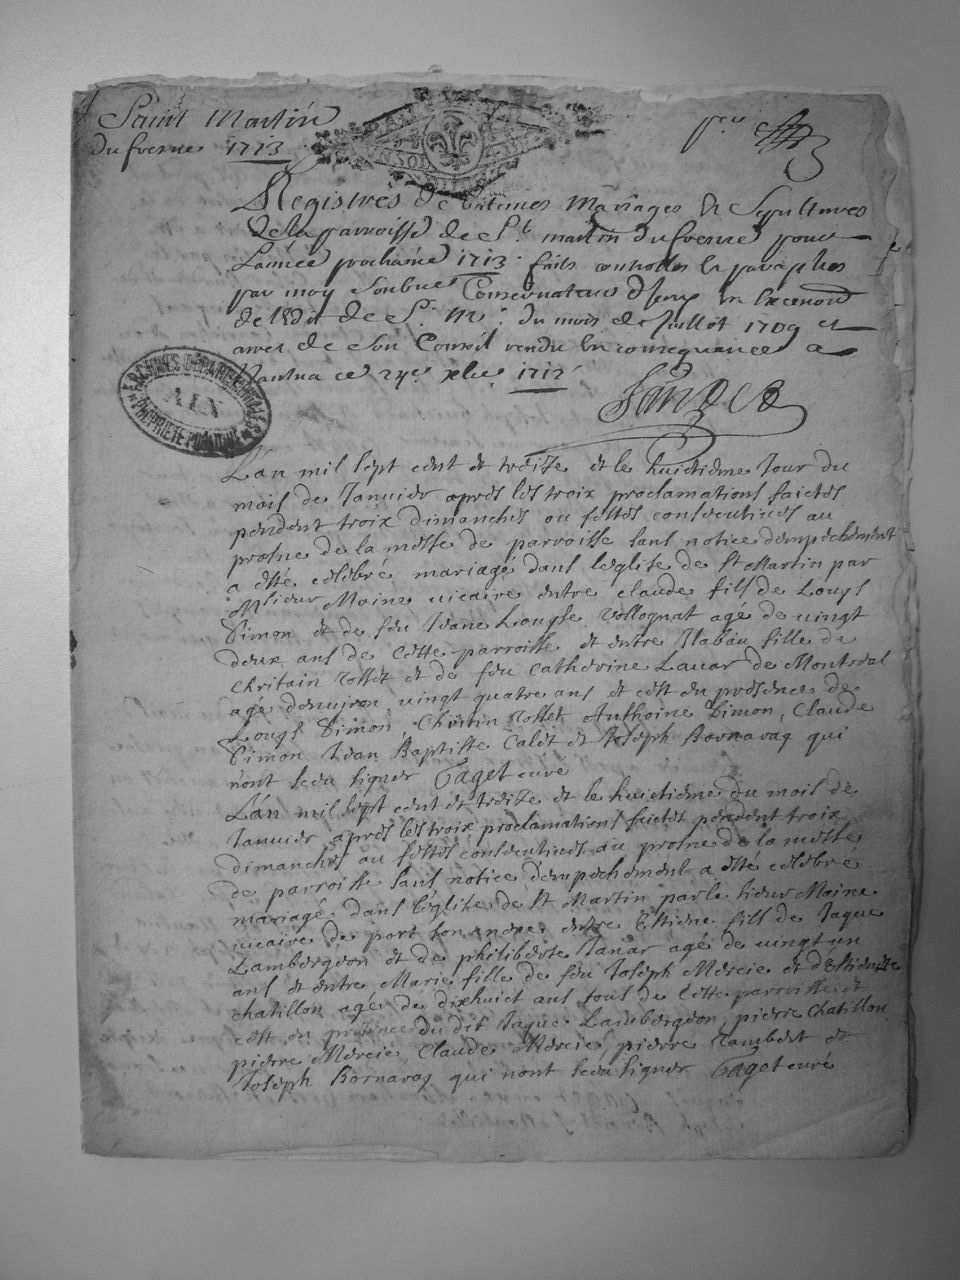 Saint Martin
du fresne 1713
Registres de batemes Mariages & Sepultures
de la parroisse de St. martin du fresne pour
L'année prochaine 1713 faits controllés & paraphes
par moy soubne Conservateur d'Iceux en execuon
de l'Edit de S. M. du mois de Juillot 1709 et
arret de son Conseil rendu en consequance a
Nantua ce 1712
ARCHIVES DÉPARTEMENTALES
AIN
PROPRIÉTÉ PUBLIQUE
L'an mil sept cent et treize et le huictieme Jour du
mois de Januier apres les troix proclamations faictes
pendent troix dimanches ou festes consecutiues au
prosne de la messe de parroisse sans notice dempechement
a esté celebré mariage dans leglise de St Martin par
Msieur Moine uicaire entre claude fils de Louys
Simon et de feu Jeane Louyse Vollognat agé de uingt
deux ans de cette parroisse et entre Isabau fille de
Chritain rosset et de feu Catherine Lauar de Montreal
age denuiron uingt quatre ans et cest en presence de
Louys Simon, Christin rosset Anthoine Simon, Claude
Simon Jean Baptiste Calet et Joseph Bornarag qui
n'ont sceu signer Gaget curé
L'an mil sept cent et treize et le huictieme du mois de
Januier apres les troix proclamations faictes pendent troix
dimanches ou festes consecutiues au prosne de la messe
de parroisse sans notice dempechement a esté celebré
mariage dans leglise de St Martin par le sieur Moine
uicaire de port entre Estiene fils de Jaque
Lambergeon et de philiberte Janar agé de uingt un
ans et entre Marie fille de feu Joseph Mercie et d'Estienette
chatillon agée de dixhuict ans tous de cette parroisse et
cest en presence du dit Jaque Lambergeon, pierre chatillon
pierre Mercie, Claude Mercie, pierre Jambert et
Joseph Bornarag qui nont sceu signer Gaget curé